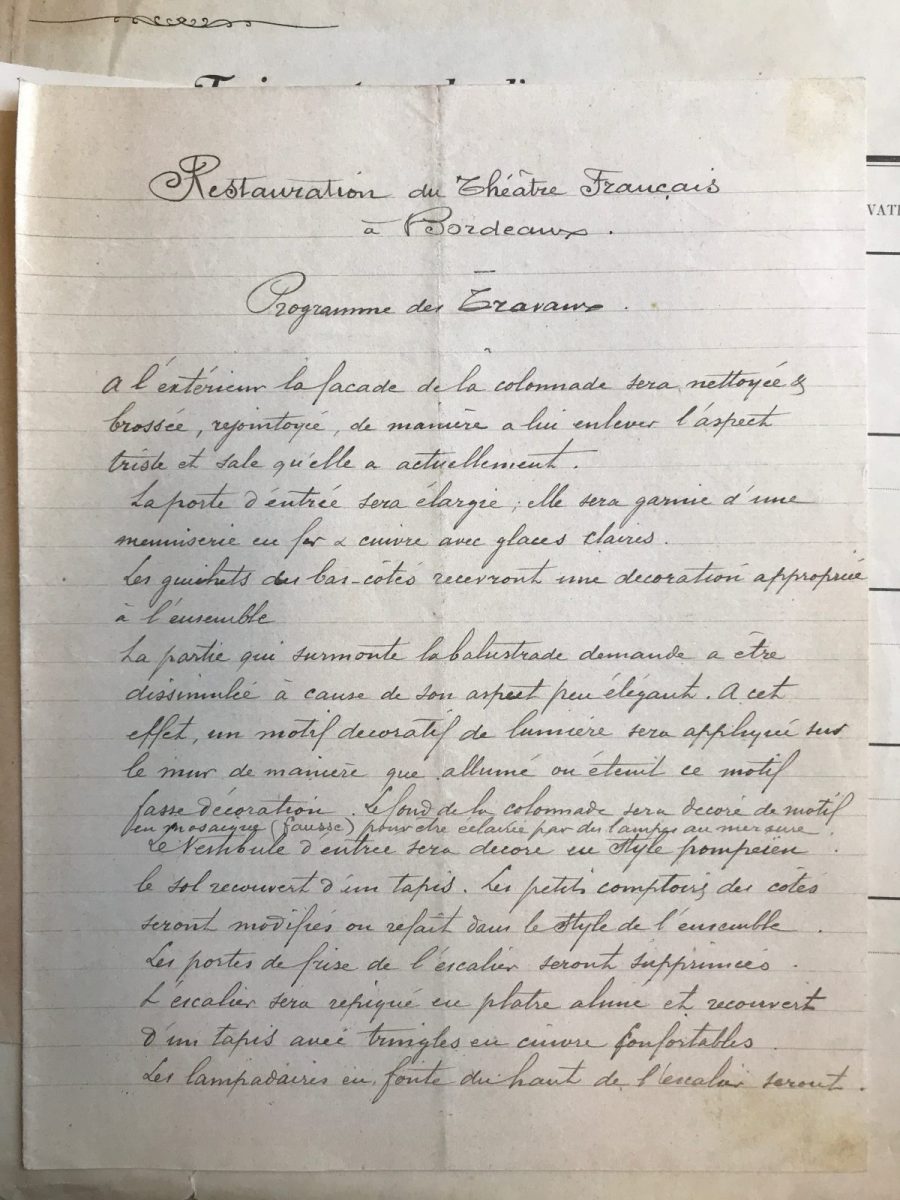 Restauration du Théâtre Français
à Bordeaux.
Programme des Travaux.
A l'éxtérieur la façade de la colonnade sera nettoyée &
brossée, rejointoyée, de manière a lui enlever l'áspect
triste et sale qu'elle a actuellement.
La porte d'éntrée sera élargie; elle sera garnie d'une
menuiserie en fer & cuivre avec glaces claires.
Les guichets des bas-côtés recevront une decoration appropriée
à l'énsemble
La partie qui surmonte la balustrade demande a être
dissimulée à cause de son aspect peu élégant. A cet
effet, un motif decoratif de lumière sera appliqué sur
le mur de manière que allumé ou éteint ce motif
fasse décoration. Le fond de la colonnade sera decoré de motif
en mosaique (fausse) pour être éclairée par des lampes au mercure.
Le Vestibule d'éntrée sera décoré en Style pompeien.
le sol recouvert d'un tapis. Les petits comptoirs des côtés
seront modifiés ou refait dans le Style de l'énsemble.
Les portes de frise de l'éscalier seront supprimées.
L'éscalier sera repiqué en platre aluné et recouvert
d'un tapis avec tringles en cuivre confortables.
Les lampadaires en fonte du haut de l'éscalier seront.
VATI